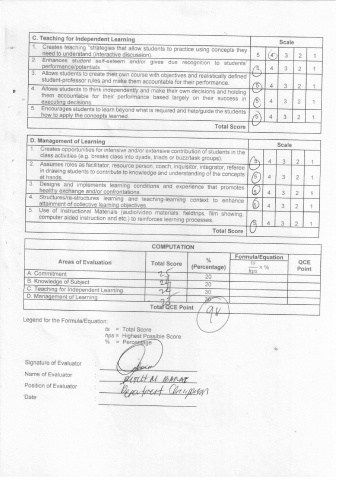 C. Teaching for Independent Learning
Scale
1. Creates teaching strategies that allow students to practice using concepts they need to understand (interactive discussion)
5 4 3 2 1
2. Enhances student self-esteem and/or gives due recognition to students' performance/potentials
5 4 3 2 1
3. Allows students to create their own course with objectives and realistically defined student-professor rules and make them accountable for their performance.
5 4 3 2 1
4. Allows students to think independently and make their own decisions and holding them accountable for their performance based largely on their success in executing decisions.
5 4 3 2 1
5. Encourages students to learn beyond what is required and help/guide the students how to apply the concepts learned.
5 4 3 2 1
Total Score
D. Management of Learning
Scale
1. Creates opportunities for intensive and/or extensive contribution of students in the class activities (e.g. breaks class into dyads, triads or buzz/task groups).
5 4 3 2 1
2. Assumes roles as facilitator, resource person, coach, inquisitor, integrator, referee in drawing students to contribute to knowledge and understanding of the concepts at hands.
5 4 3 2 1
3. Designs and implements learning conditions and experience that promotes healthy exchange and/or confrontations.
5 4 3 2 1
4. Structures/re-structures learning and teaching-learning context to enhance attainment of collective learning objectives.
5 4 3 2 1
5. Use of Instructional Materials (audio/video materials, fieldtrips, film showing, computer aided instruction and etc.) to reinforces learning processes.
5 4 3 2 1
Total Score
COMPUTATION
Areas of Evaluation
Total Score
% (Percentage)
Formula/Equation
ts
hps
× %
QCE Point
A. Commitment 25 20
B. Knowledge of Subject 20
C. Teaching for Independent Learning 24 30
D. Management of Learning 30
Total QCE Point
98
Legend for the Formula/Equation:
ts = Total Score
hps = Highest Possible Score
% = Percentage
Signature of Evaluator
Name of Evaluator
Position of Evaluator Department Chairperson
Date